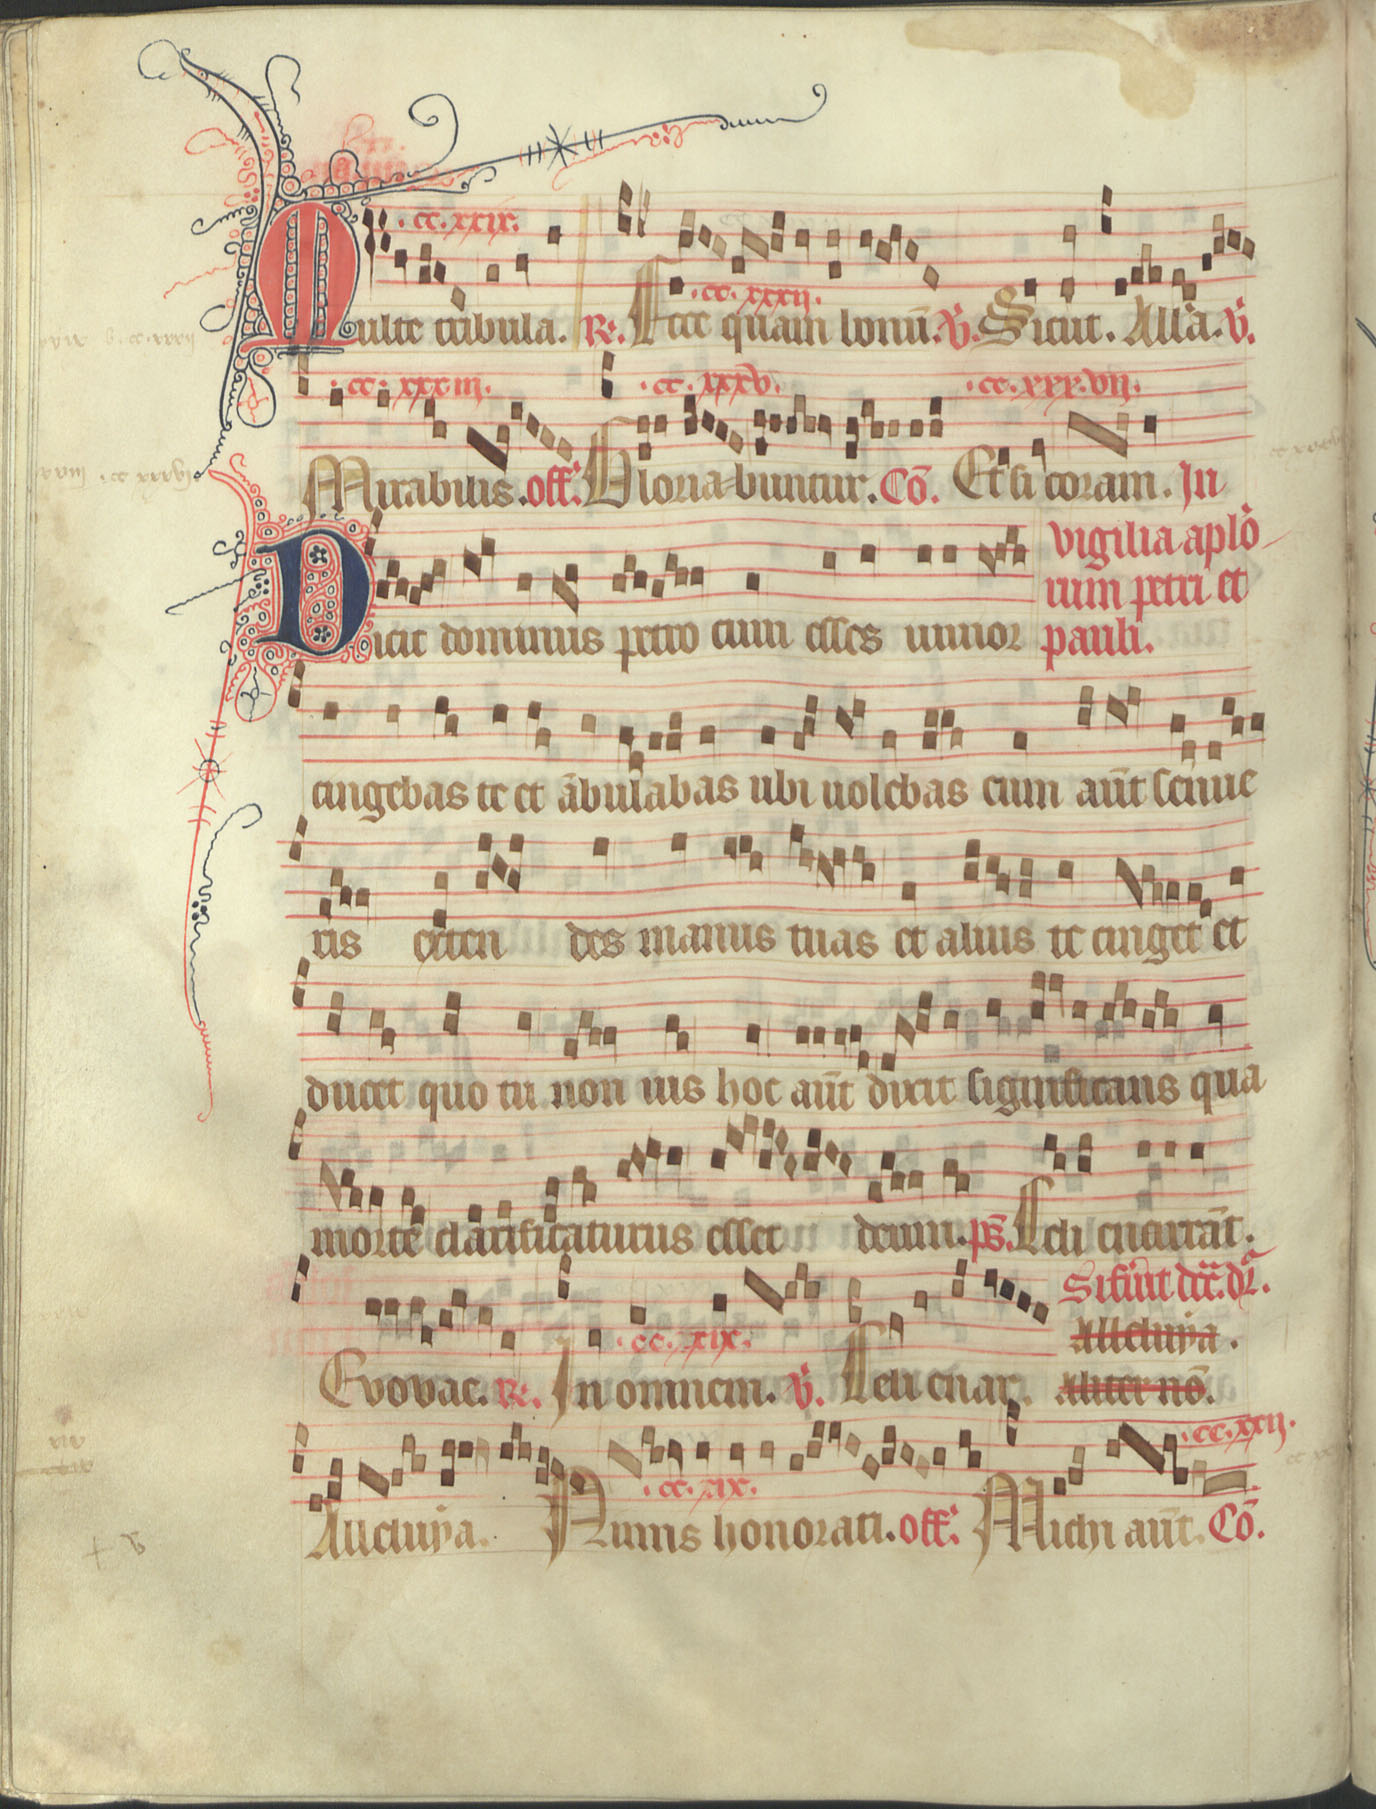 .cc.xxix.
.cc.xxxii.
Multe tribula. R. Ecce quam bonū. V. Sicut. Alla. V.
.cc.xxxiii. .cc.xxxv. .cc.xxx.vii.
Mirabilis. off. Gloria-buntur. Cō. Et si coram. In
vigilia aplo-
rum petri et
Dicit dominus petro cum esses iunior pauli.
cingebas te et ābulabas ubi uolebas cum aūt senue
ris exten des manus tuas et alius te cinget et
ducet quo tu non uis hoc aūt dixit significans qua
morte clarificaturus esset deum. ps. Celi enarrāt.
Si fu̅it
Alleluya.
.cc.xix.
Evovae. R. In omnem. V. Celi enar. Aliter nō.
.cc.xxii.
.cc.xix.
Alleluya. Nimis honorati. off. Michi aūt. Cō.